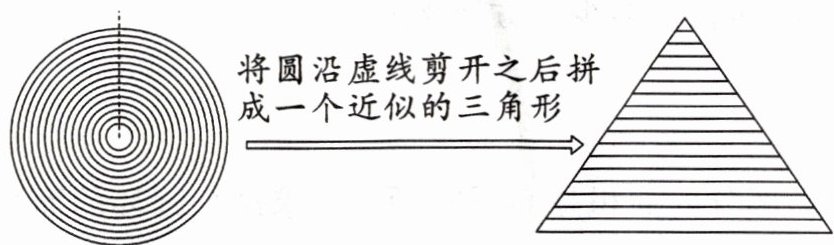 将圆沿虚线剪开之后拼
成一个近似的三角形